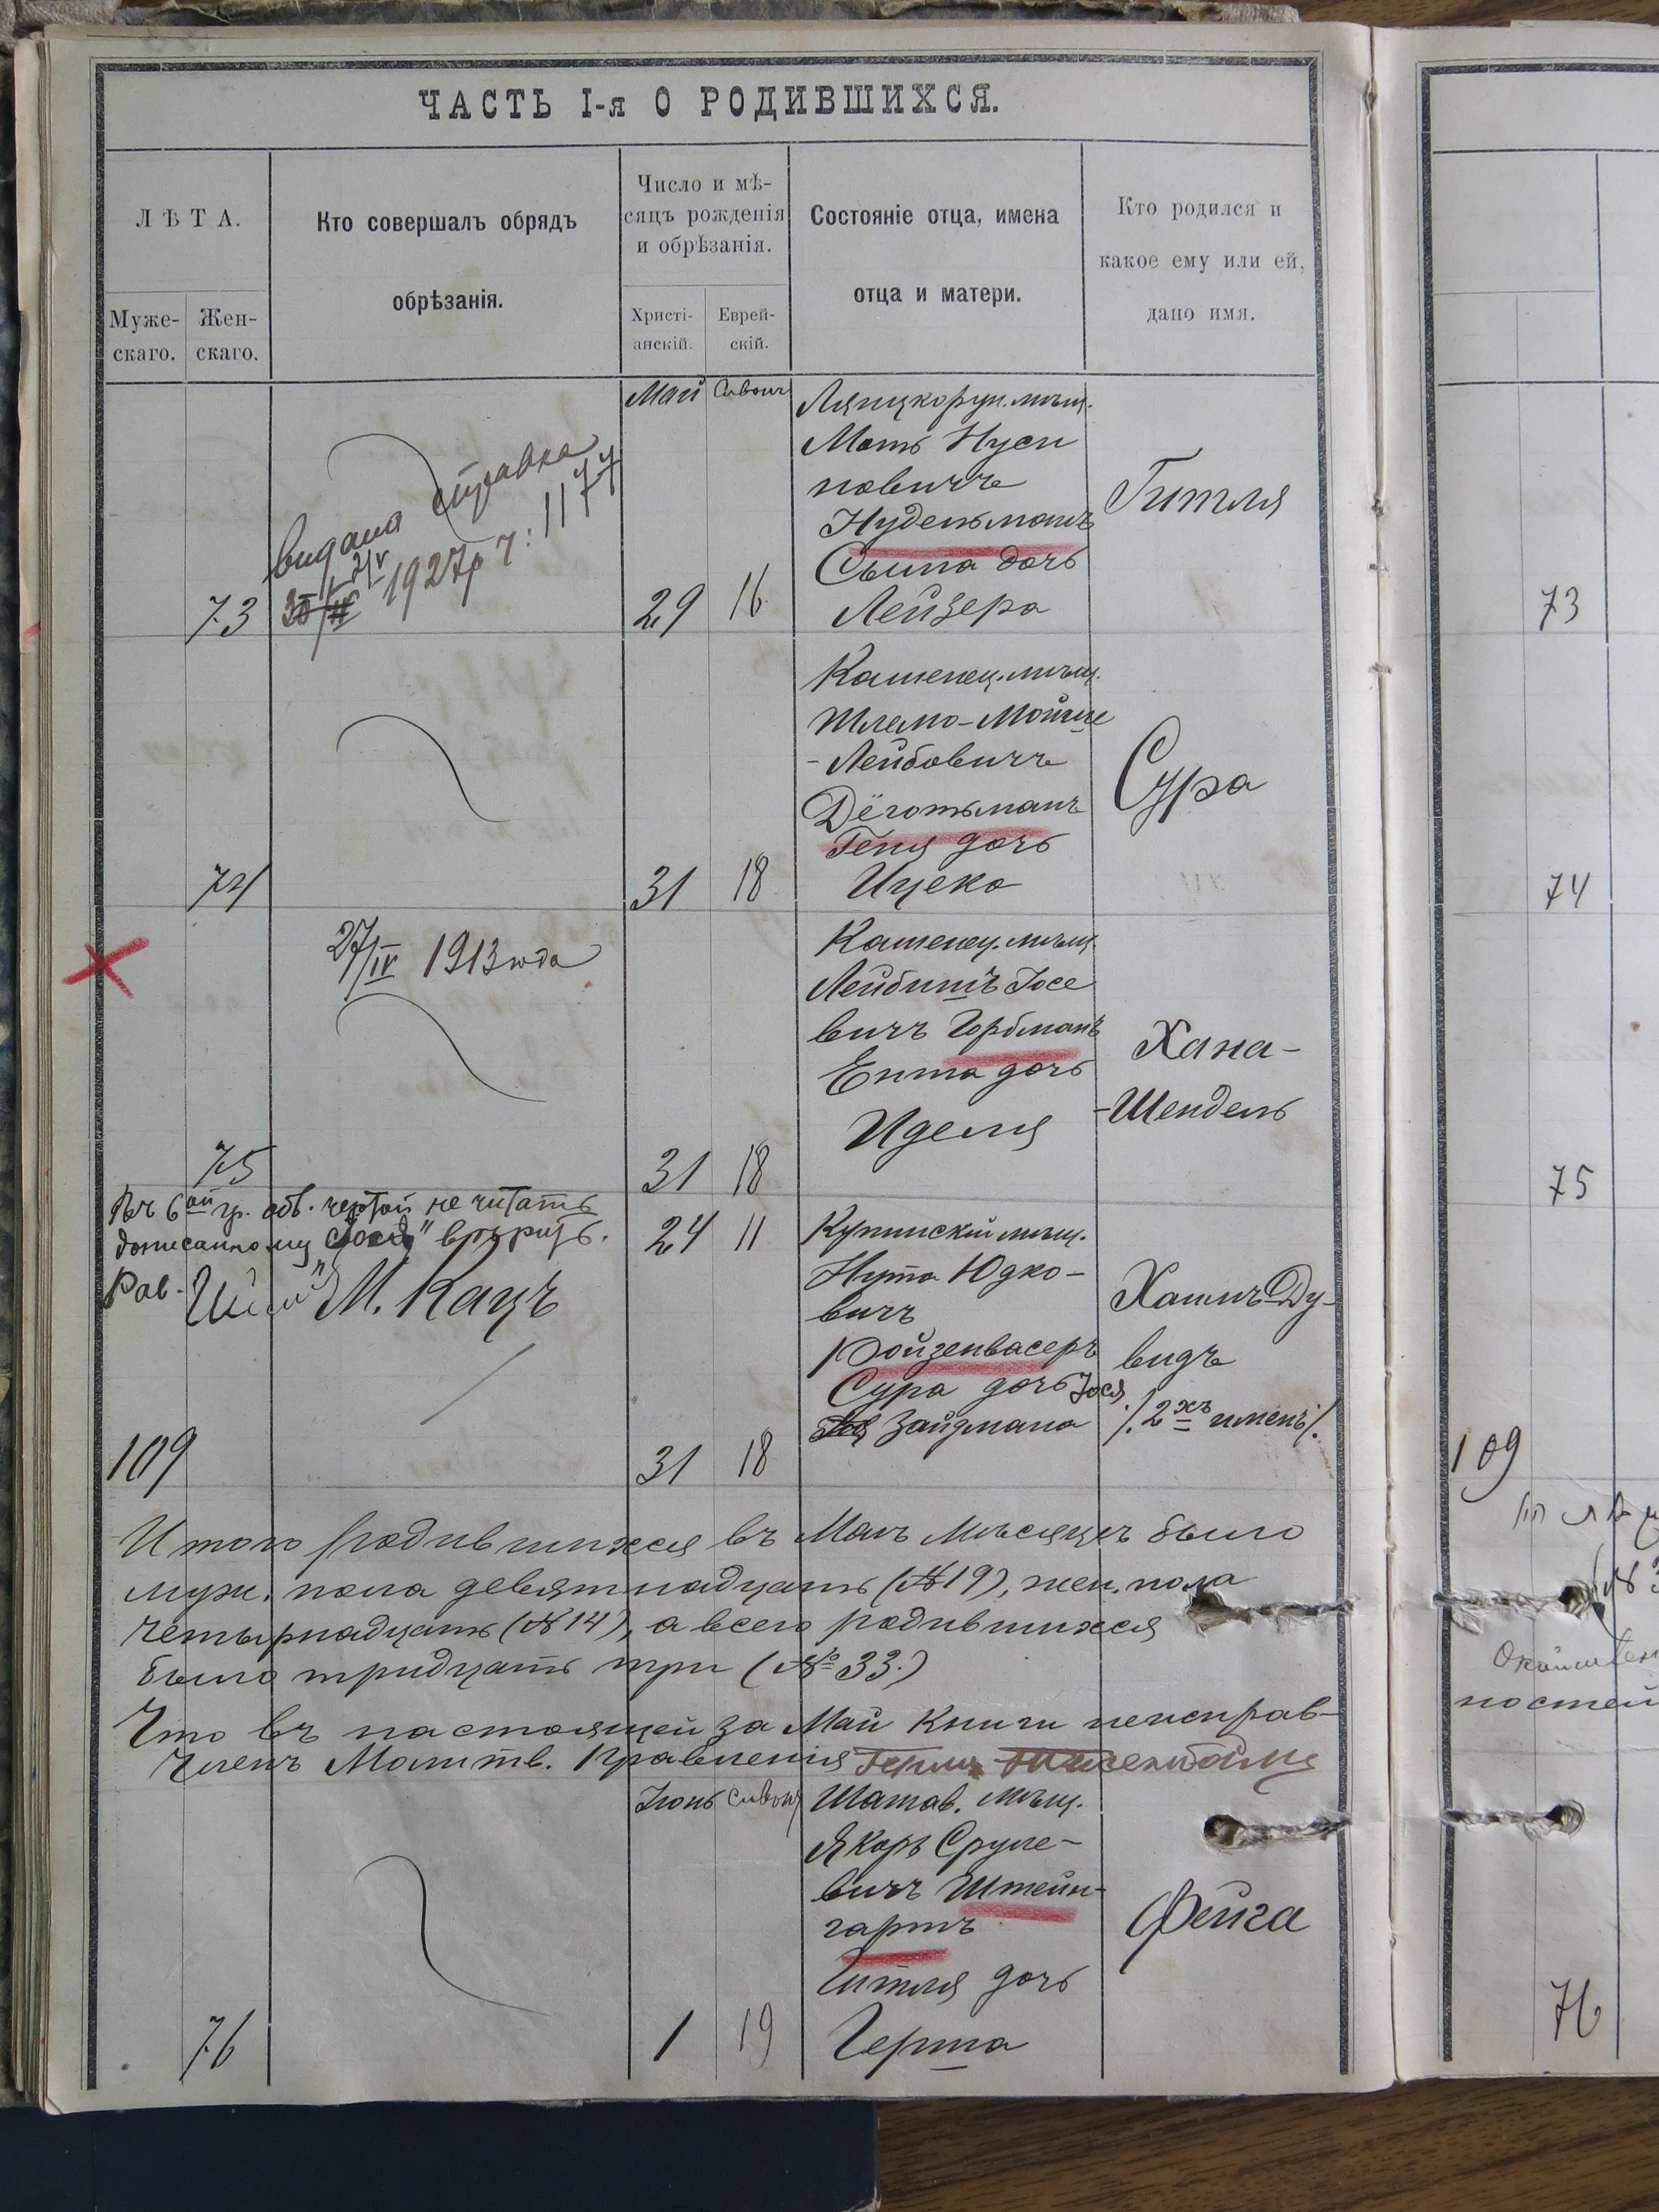 ЧАСТЬ I-я О РОДИВШИХСЯ.
ЛѢТА.
Муже-
скаго.
Жен-
скаго.
Кто совершалъ обрядъ
обрѣзанія.
Число и мѣ-
сяцъ рожденія
и обрѣзанія.
Христі-
анскій.
Еврей-
скій.
Состояніе отца, имена
отца и матери.
Кто родился и
какое ему или ей,
дано имя.
Май
Сивонъ
73
видана справка
2/V 1927р ч: 1177
29
16
Ляцкорун. мѣщ.
Моть Нуси
новичъ
Нудельманъ
Сыма дочь
Лейзера
Гитля
73
74
31
18
Каменец. мѣщ.
Шлемо-Мойше
-Лейбовичъ
Дёготьманъ
Геня дочь
Ицека
Сура
74
27/IV 1913 года
75
31
18
Каменец. мѣщ.
Лейбишъ Іосе
вичъ Горбманъ
Ента дочь
Иделя
Хана-
-Шендель
75
Въ 6ой гр. обв. чертой не читать
дописанному „Іося" вѣрить.
Рав. М. Кацъ
24
11
109
31
18
Купинскій мѣщ.
Нута Юдко-
вичъ
Ройзенвасеръ
Сура дочь Іося
Зайдмана
Хаимъ-Ду-
видъ
/.2хъ именъ/.
109
Итого родившихся въ Маѣ мѣсяцѣ было
муж. пола девятнадцать (№19), жен. пола
четырнадцать (№14), а всего родившихся
было тридцать три (№ 33.)
Что въ настоящей за Май Книги неисправ-
Членъ Молитв. Правленія
постей
Іюнь
Сивонъ
76
1
19
Шатав. мѣщ.
Якорь Сруле-
вичъ Штейн-
гартъ
Гитля дочь
Герша
Фейга
76